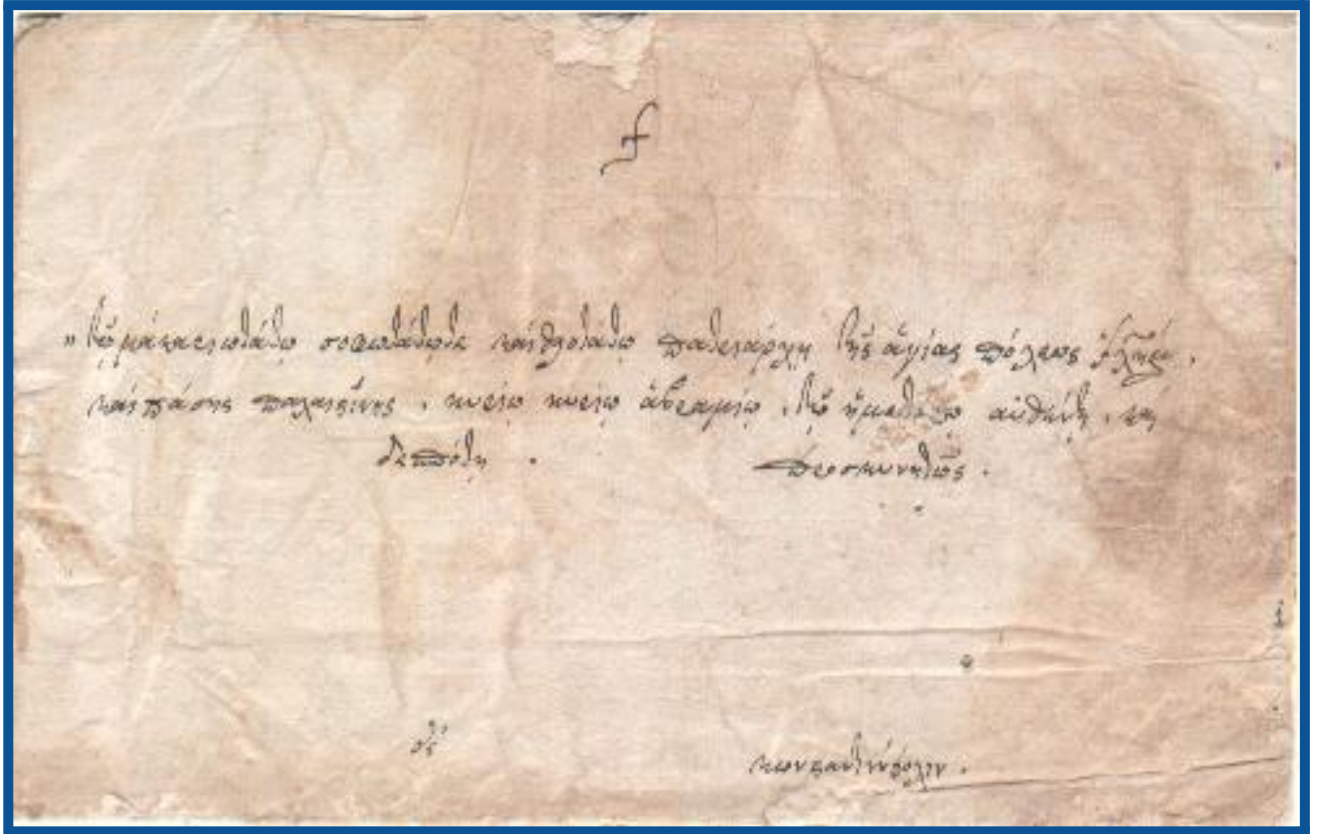 τῷ μακαριωτάτῳ σοφωτάτῳ τε καὶ πατριάρχῃ τῆς ἁγίας πόλεως
καὶ πάσης παλαιστίνης . κυρίῳ κυρίῳ ἀβραμίῳ . τῷ ἡμετέρῳ αὐθέντῃ . καὶ
δεσπότῃ . προσκυνητῶς .
εἰς
κωνσταντινούπολιν .